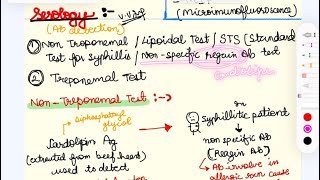 Serology :- v.v.Imp
(Microimmunofluorescence)
(Ab detection)
① Non Troponemal / Lipoidal Test / STS (Standard
Test for Syphillis / Non-specific Reagin Ab test
② Treponemal Test
Non-Treponemal Test :→
diphosphatidyl
glycol
Cardiolpin Ag
(extracted from beef heart)
used to detect
In
Syphillitic patient
non specific Ab
(Reagin Ab)
→ Ab involve in
allergic rxn cause